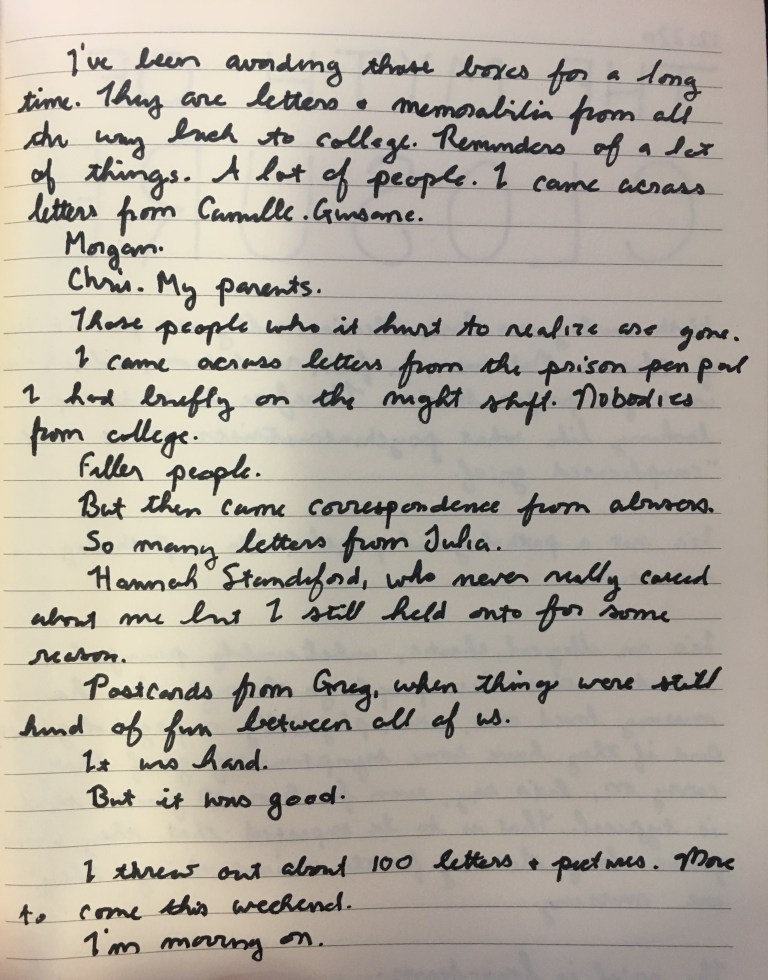 I've been avoiding these boxes for a long
time. They are letters + memorabilia from all
the way back to college. Reminders of a lot
of things. A lot of people. I came across
letters from Camille.
Morgan.
Chris. My parents.
Those people who it hurt to realize are gone.
I came across letters from the prison pen pal
I had briefly on the night shift. Nobodies
from college.
Filler people.
But then came correspondence from abusers.
So many letters from Julia.
Hannah Standiford, who never really cared
about me but I still held onto for some
reason.
Postcards from Greg, when things were still
kind of fun between all of us.
It was hard.
But it was good.
I threw out about 100 letters + pictures. More
to come this weekend.
I'm moving on.